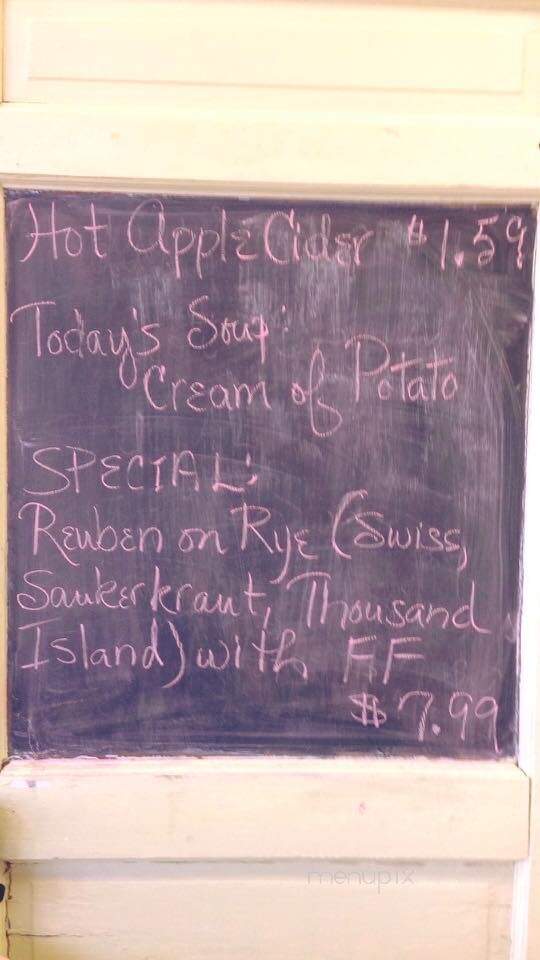 Hot Apple Cider $1.59
Today's Soup:
Cream of Potato
SPECIAL:
Reuben on Rye (Swiss,
Saukerkraut, Thousand
Island) with FF
$7.99
menupix